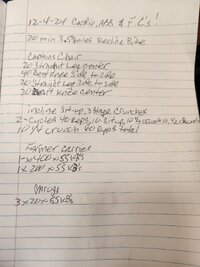 12-4-24 Cardio, ABS & FC's!
20 min 3.59miles Recline Bike
Captains Chair
20 Straight Leg Center
40 Bent Knee Side to side
20 Straight Leg Side to side
20 Bent Knee Center
incline Sit-up, 3 Stage Crunches
2-Cycles 40 Reps, 10-Situp, 10 3/4 crunch 10 1/2 crunch
10 1/4 crunch 40 Reps total
Farmer Carries
1-x400x55KB's
1x200x55KB's
Shrugs
3x20x55KB's